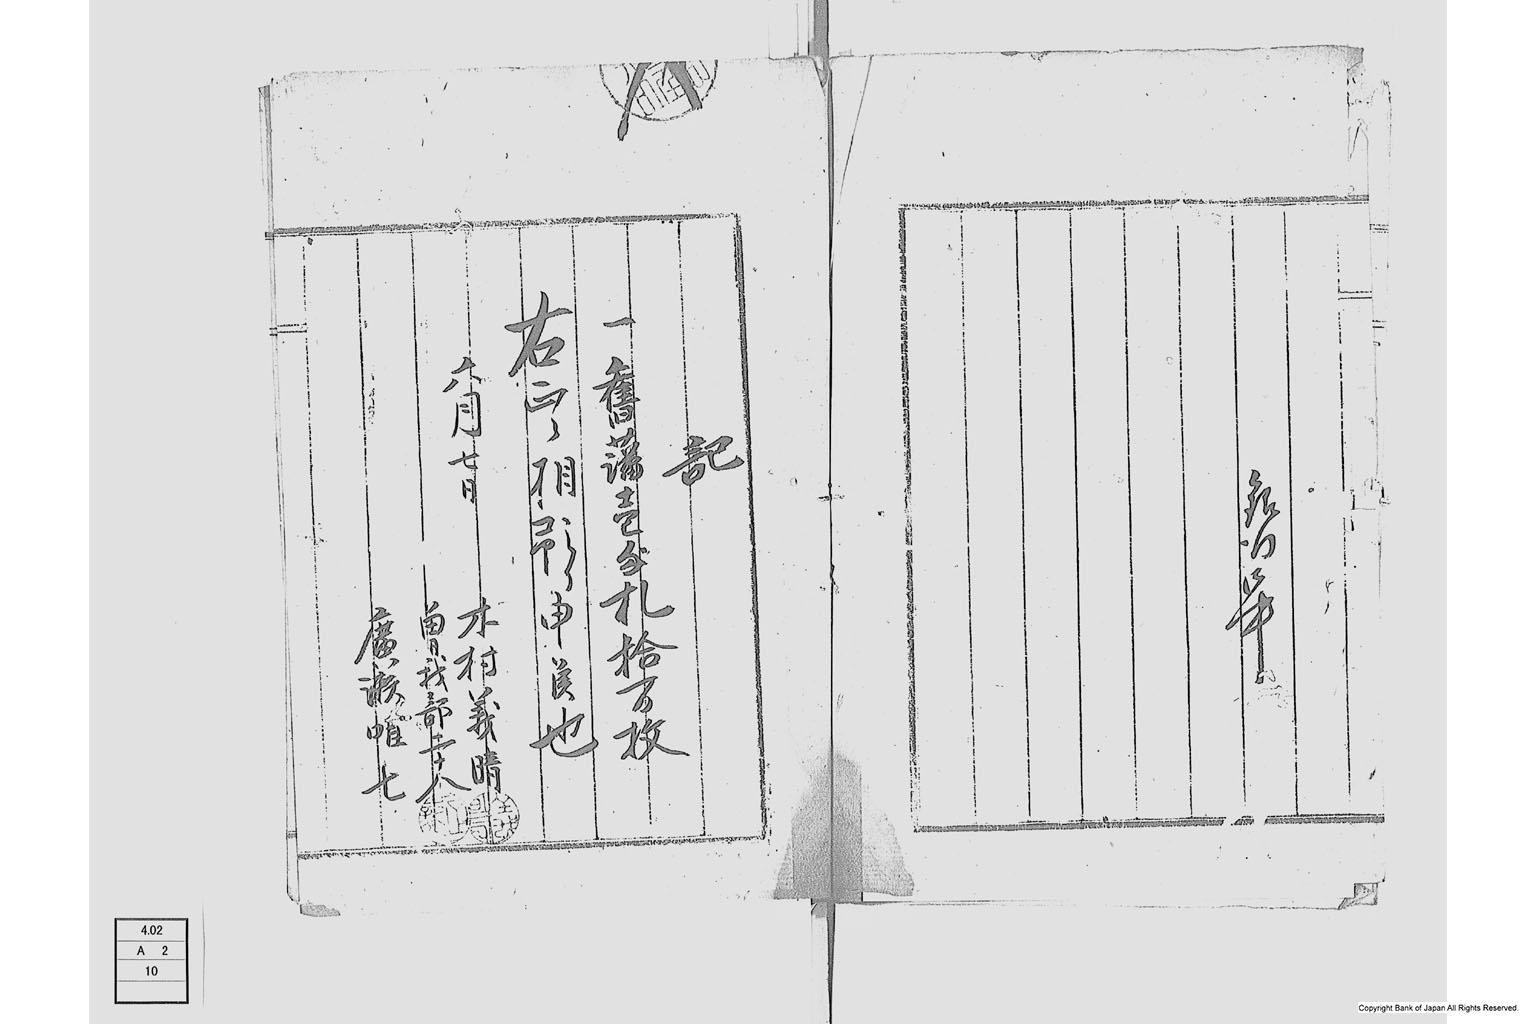 記
一舊藩壱匁札拾万枚
右正ニ相預り申候也
六月七日
木村義晴
曽我部二十八
廣瀬唯七
4.02
A 2
10
Copyright Bank of Japan All Rights Reserved.